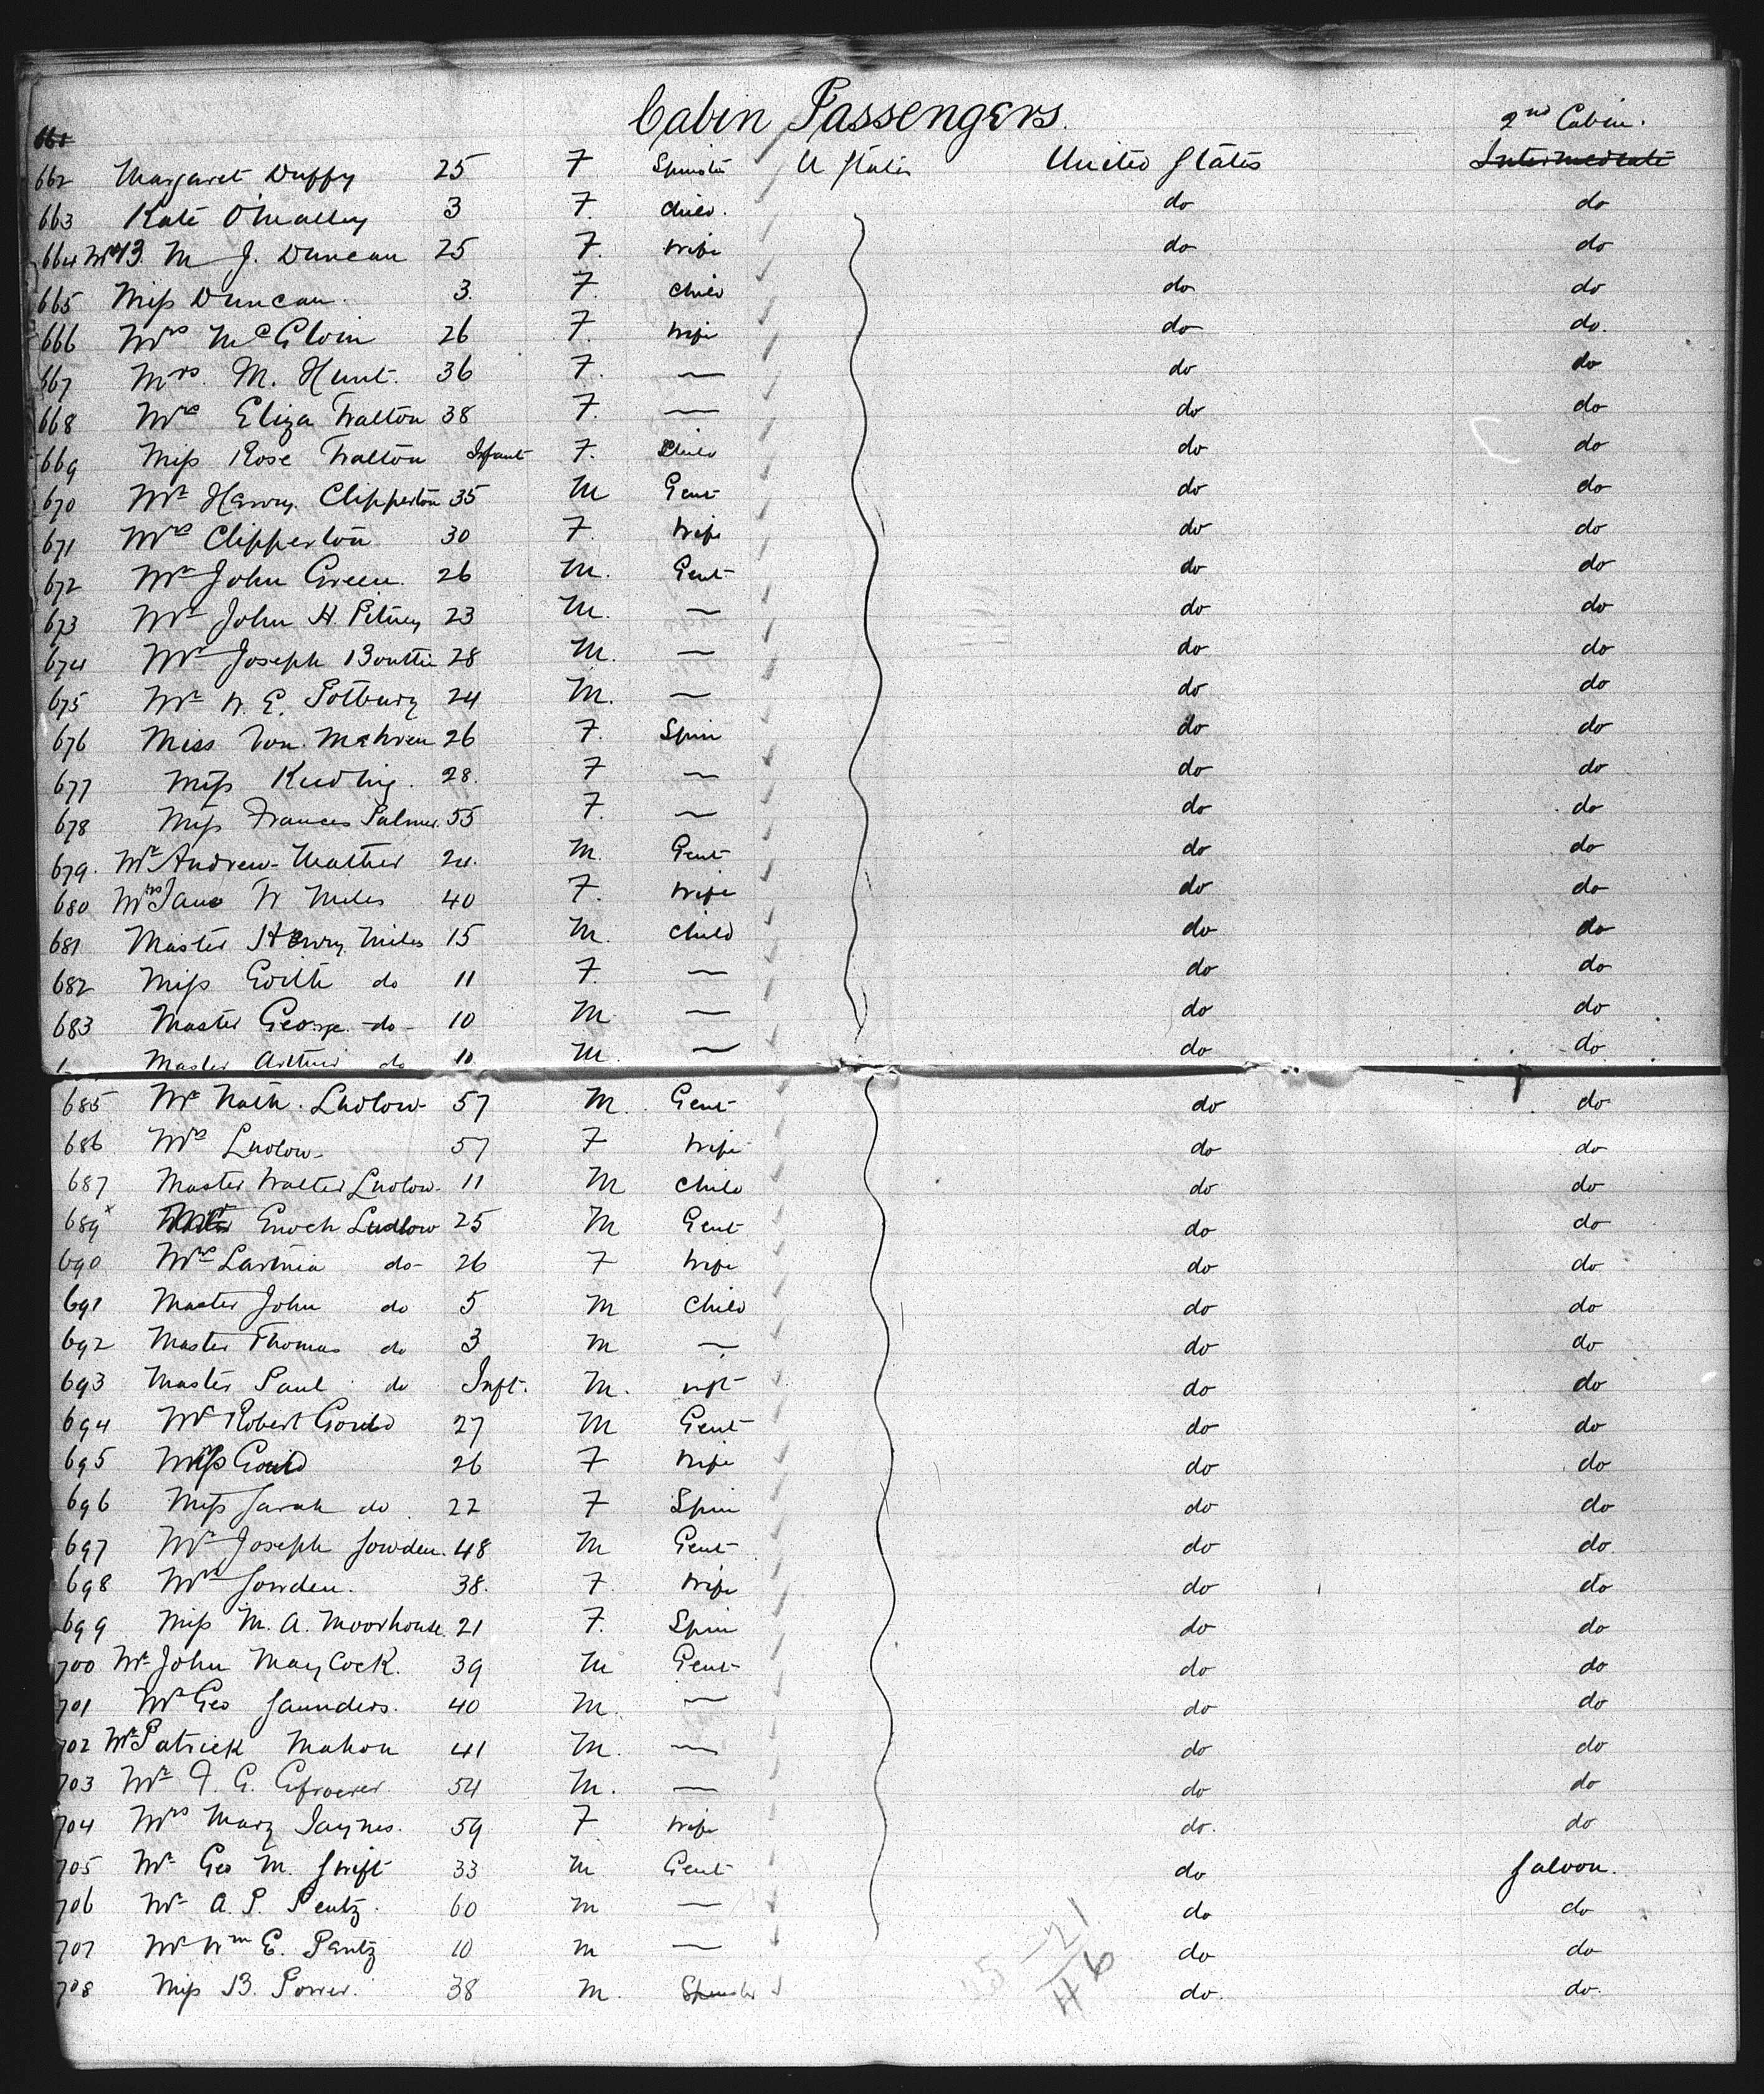 Cabin Passengers.
2nd Cabin.
661
662 Margaret Duffy 25 F Spinster U States United States Intermediate
663 Kate O'Malley 3 F. Child. do do
664 Mrs M J. Duncan 25 F. Wife do do
665 Miss Duncan. 3. F. Child do do
666 Mrs McGloin 26 F. Wife do do.
667 Mrs. M. Hunt. 36 F. — do do
668 Mrs Eliza Walton 38 F. — do do
669 Miss Rose Walton Infant F. Child do do
670 Mr Henry Clipperton 35 M Gent do do
671 Mrs Clipperton 30 F. Wife do do
672 Mr John Green. 26 M. Gent do do
673 Mr John H. Pitney 23 M. — do do
674 Mr Joseph 28 M. — do do
675 Mr W. E. 24 M. — do do
676 Miss Von. Mahren 26 F. Spin do do
677 Miss 28. F — do do
678 Miss Frances Palmer. 55 F. — do do
679. Mr Andrew Mather 24. M. Gent do do
680 Mrs Jane W Miles 40 F. Wife do do
681 Master Henry Miles 15 M. Child do do
682 Miss Edith do 11 F. — do do
683 Master George do 10 M — do do
Master Arthur do 10. M. — do do
685 Mr Nath. Ludlow 57 M. Gent do do
686 Mrs Ludlow 57 F Wife do do
687 Master Walter Ludlow. 11 M Child do do
689 x Mr Enoch Ludlow 25 M Gent do do
690 Mrs Lavinia do 26 F Wife do do
691 Master John do 5 M Child do do
692 Master Thomas do 3 M — do do
693 Master Paul do Inft. M. inft do do
694 Mr Robert Gould 27 M Gent do do
695 Mrs Gould 26 F Wife do do
696 Miss Sarah do 22 F Spin do do
697 Mr Joseph Sowden. 48 M Gent do do
698 Mrs Sowden. 38. F. Wife do do
699 Miss M. A. Moorhouse. 21 F. Spin do do
700 Mr John Maycock. 39 M Gent do do
701 Mr Geo Saunders. 40 M. — do do
702 Mr Patrick Mahon 41 M. — do do
703 Mr F. G. Gfroerer 54 M. — do do
704 Mrs Mary Jaynes. 59 F Wife do. do
705 Mr Geo M. Swift 33 M Gent do Saloon.
706 Mr A. P. Pentz. 60 M — do do
707 Mr Wm E. Pentz 10 M — do do
708 Miss B. Power. 38 M. Spinster do. do.
25 – 21
46